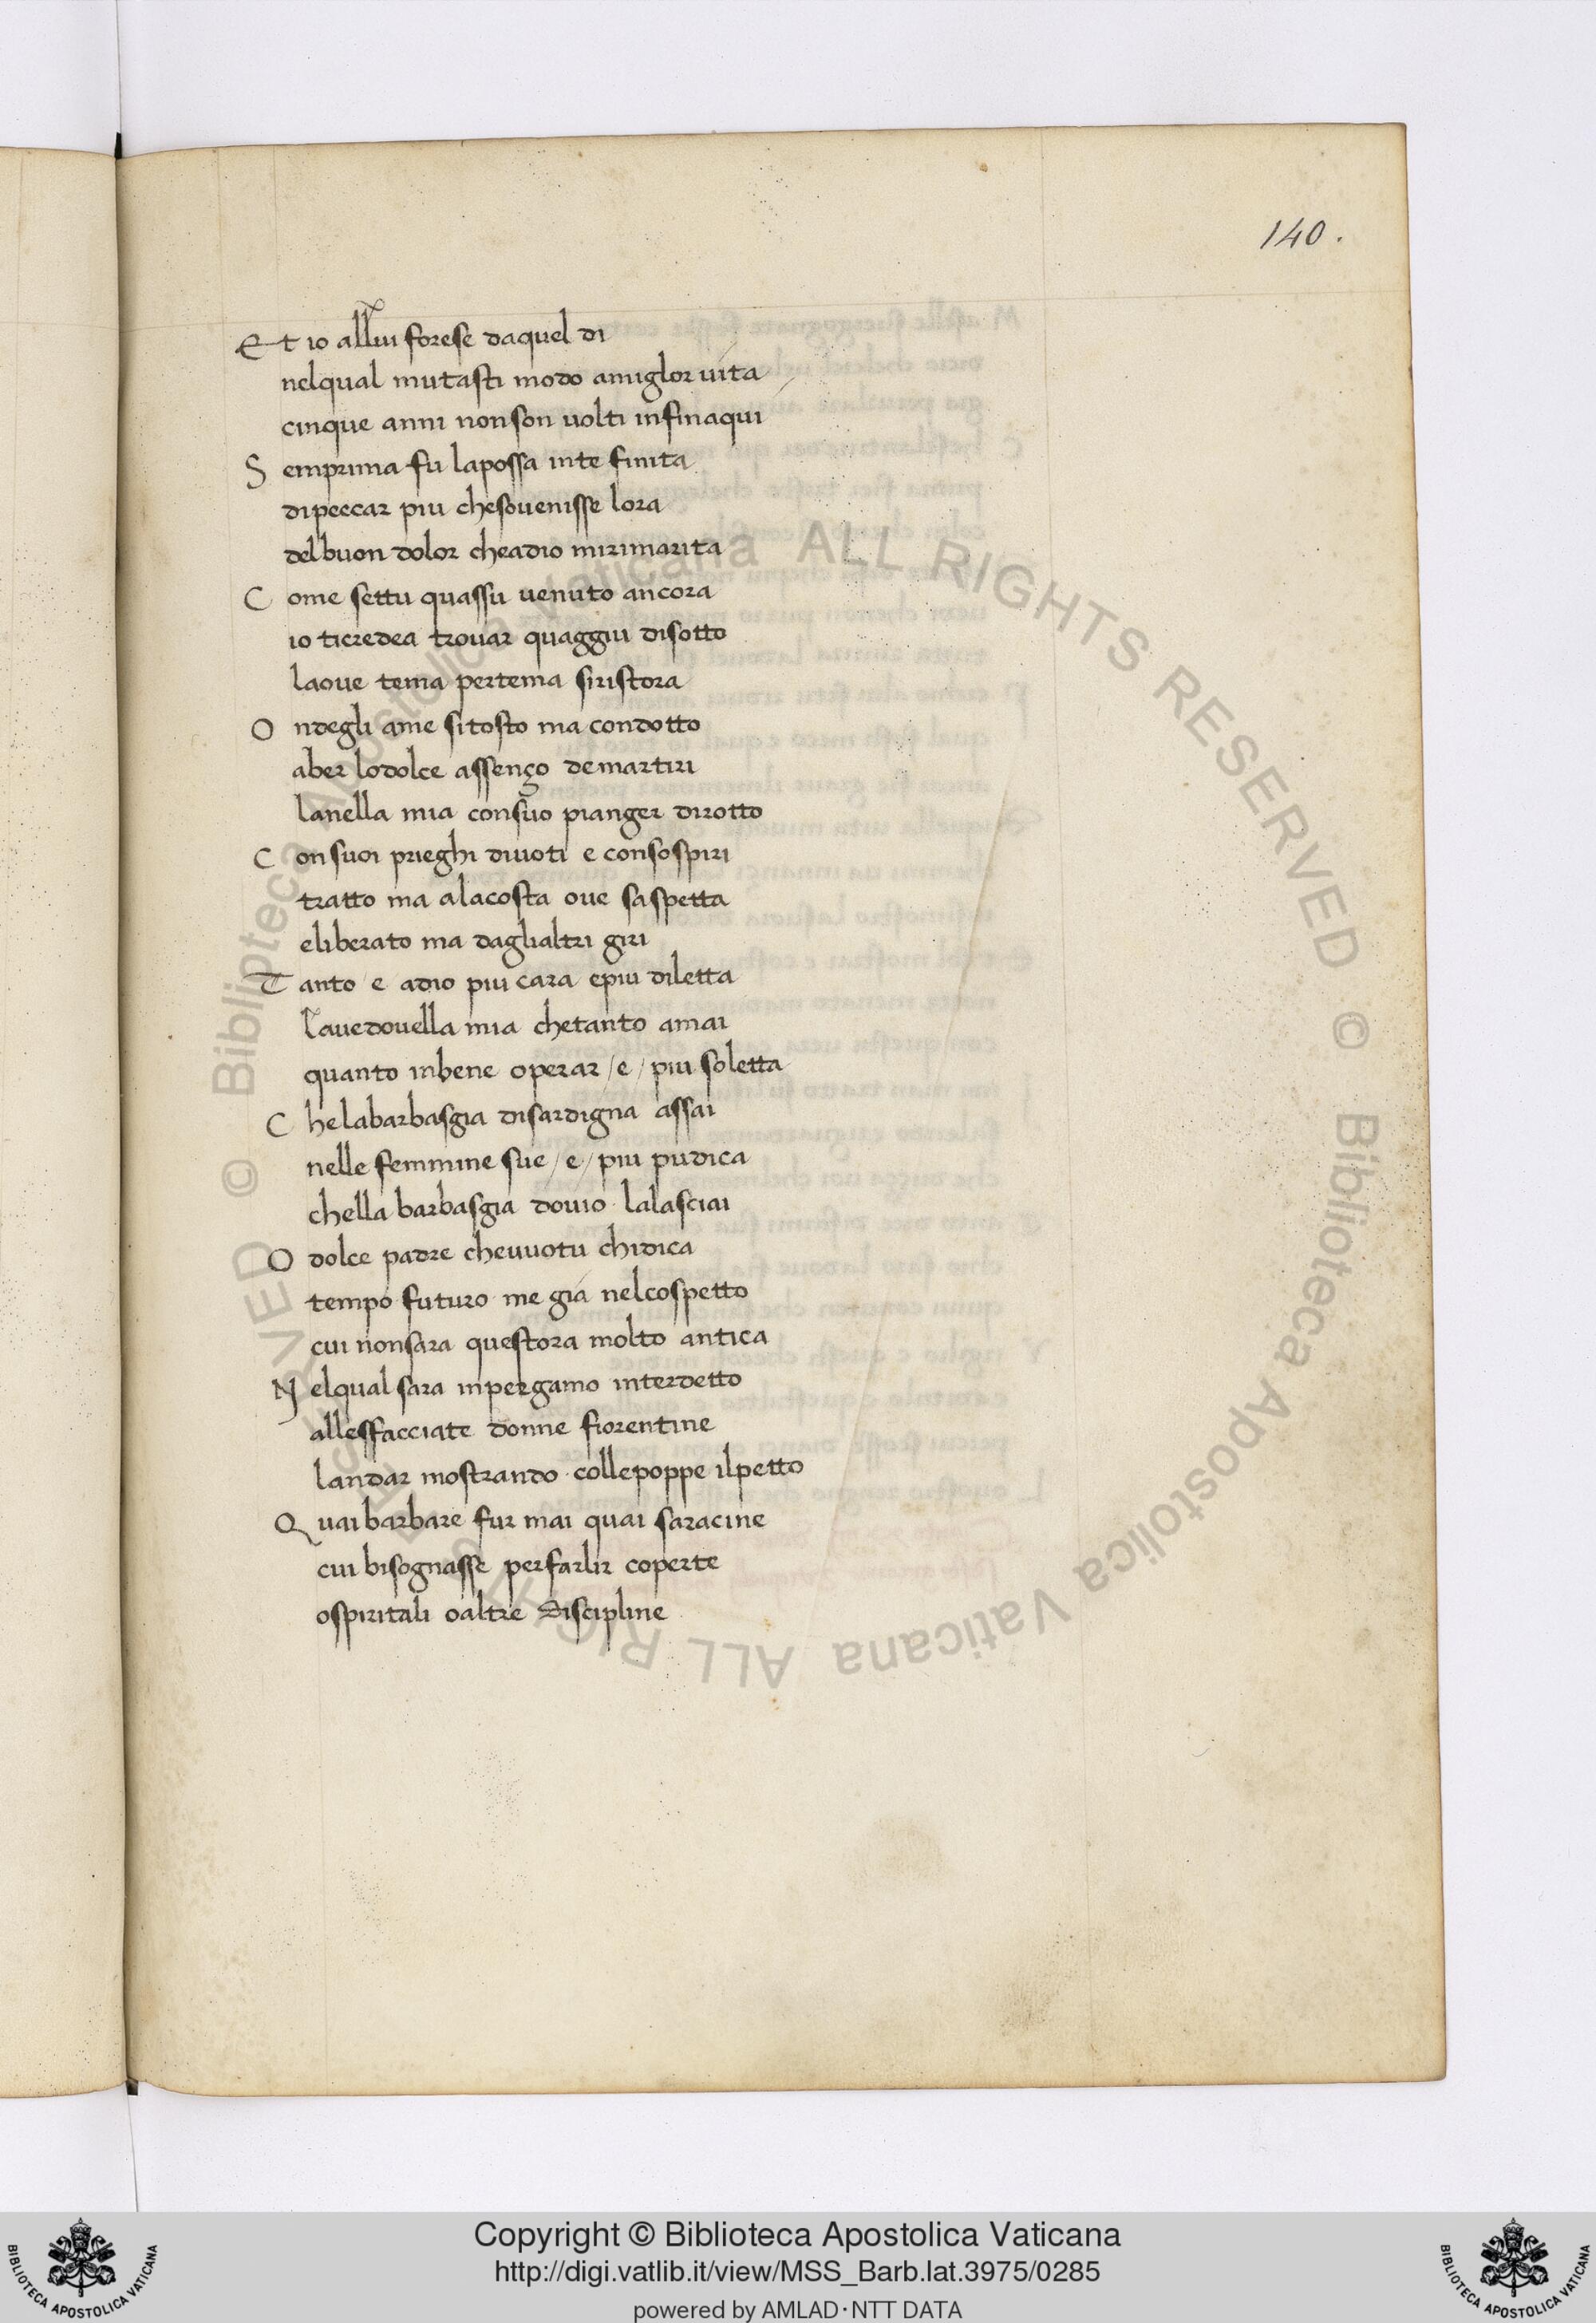 140.
Et io allui forese daquel di
nelqual mutasti modo amiglor uita
cinque anni nonson uolti infinaqui
Semprima fu lapossa inte finita
dipeccar piu chesouenisse lora
delbuon dolor cheadio mirimarita
Come settu quassu uenuto ancora
io ticredea trouar quaggiu disotto
laoue tema pertema siristora
Ondegli ame sitosto ma condotto
aber lodolce assenço demartiri
lanella mia consuo pianger dirotto
Consuoi prieghi diuoti e consospiri
tratto ma alacosta oue saspetta
eliberato ma daglialtri giri
Tanto e adio piu cara epiu diletta
lauedouella mia chetanto amai
quanto inbene operar /e/ piu soletta
Chelabarbasgia disardigna assai
nelle femmine sue /e/ piu pudica
chella barbasgia douio lalasciai
O dolce padre cheuuotu chidica
tempo futuro me già nelcospetto
cui nonsara questora molto antica
Nelqual sara inpergamo interdetto
allesfacciate donne fiorentine
landar mostrando collepoppe ilpetto
Quai barbare fur mai quai saracine
cui bisognasse perfarlir coperte
ospiritali oaltre discipline
© Biblioteca Apostolica Vaticana ALL RIGHTS RESERVED © Biblioteca Apostolica Vaticana ALL RIGHTS RESERVED
Copyright © Biblioteca Apostolica Vaticana
http://digi.vatlib.it/view/MSS_Barb.lat.3975/0285
powered by AMLAD·NTT DATA
BIBLIOTECA APOSTOLICA VATICANA
BIBLIOTECA APOSTOLICA VATICANA